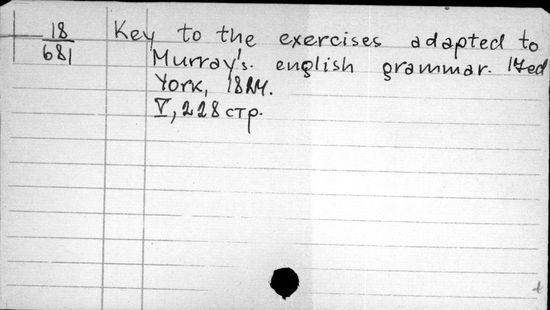 18
681
Key to the exercises adapted to
Murray's. english grammar. 17ed
York, 18
V, 228 стр.